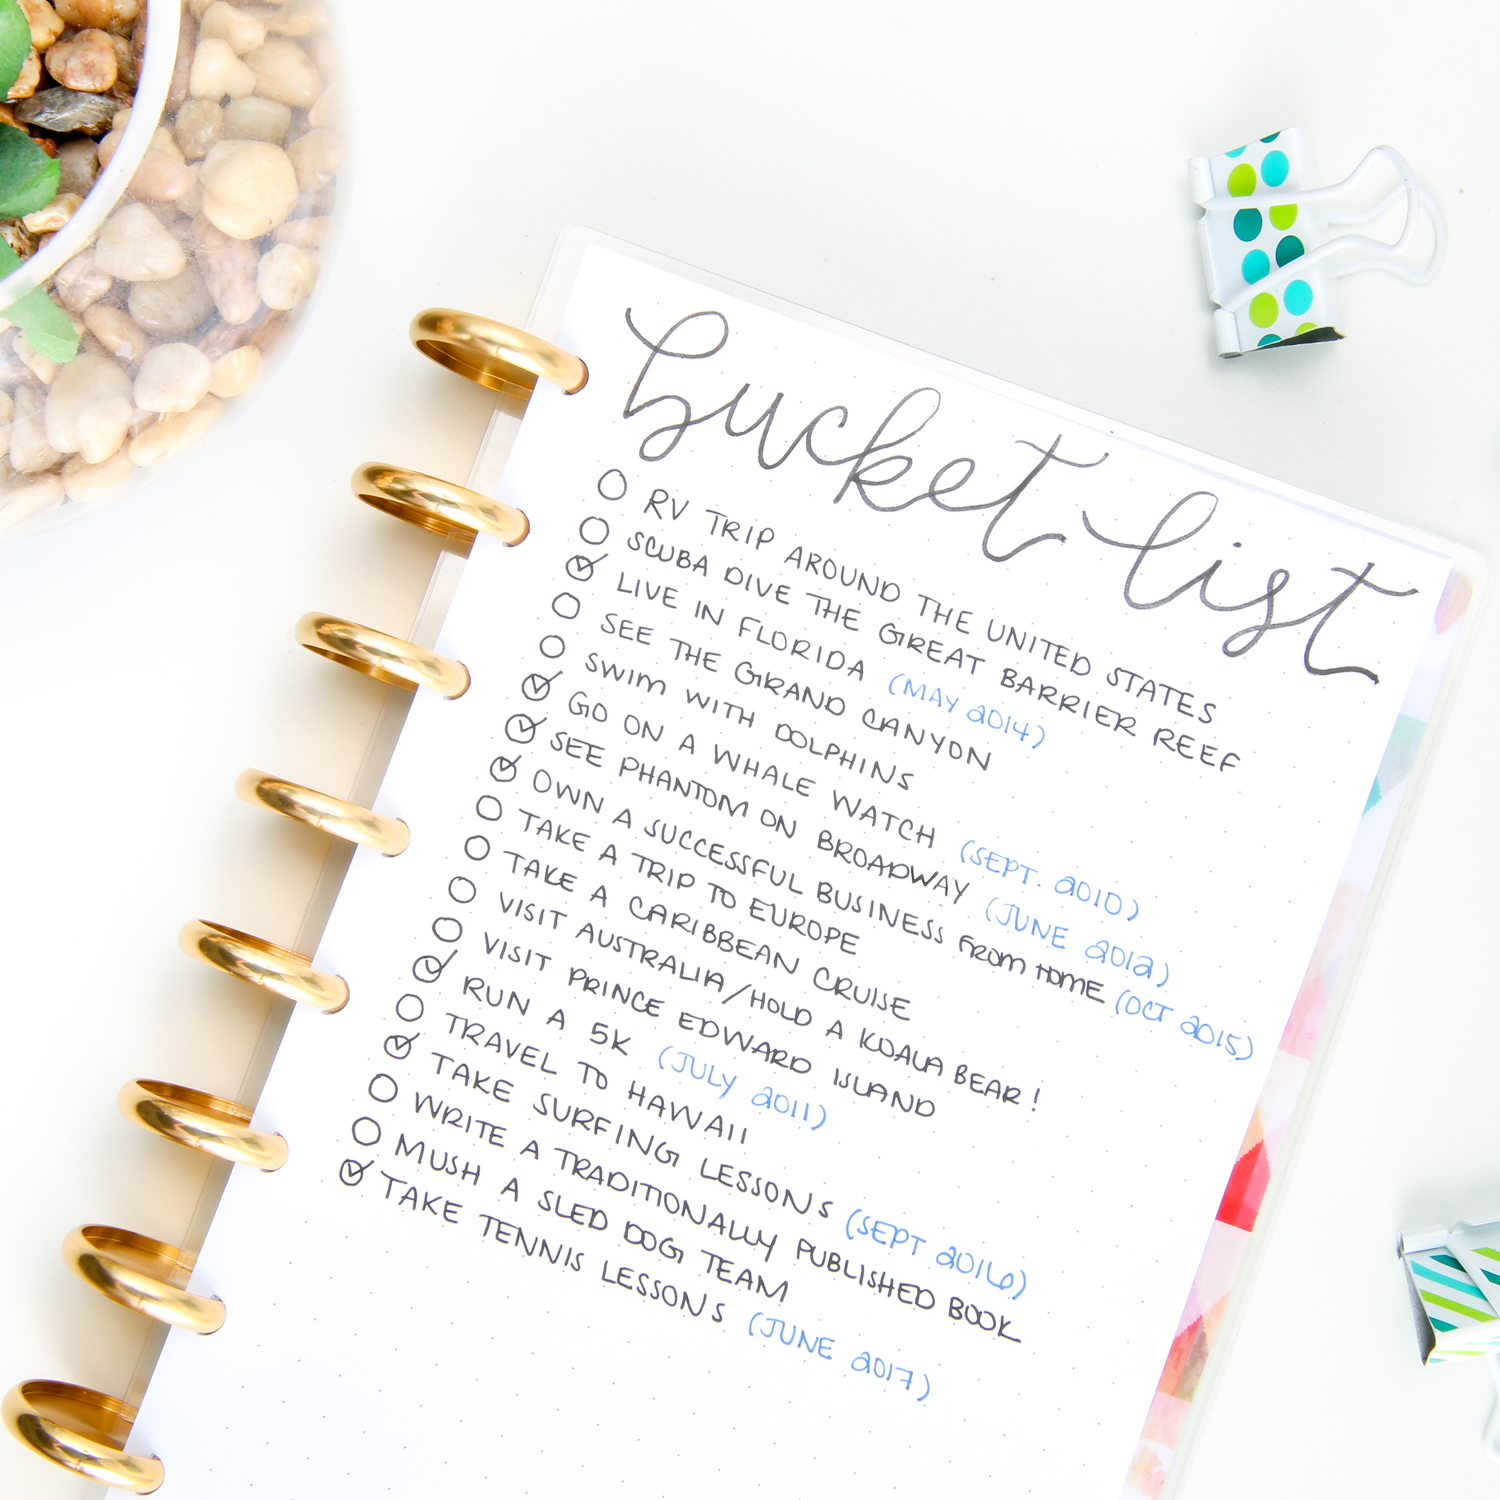 bucket list
RV TRIP AROUND THE UNITED STATES
SCUBA DIVE THE GREAT BARRIER REEF
LIVE IN FLORIDA (MAY 2014)
SEE THE GRAND CANYON
SWIM WITH DOLPHINS
GO ON A WHALE WATCH (SEPT. 2010)
SEE PHANTOM ON BROADWAY (JUNE 2012)
OWN A SUCCESSFUL BUSINESS FROM HOME (OCT 2015)
TAKE A TRIP TO EUROPE
TAKE A CARIBBEAN CRUISE
VISIT AUSTRALIA/HOLD A KOALA BEAR!
VISIT PRINCE EDWARD ISLAND
RUN A 5K (JULY 2011)
TRAVEL TO HAWAII
TAKE SURFING LESSONS (SEPT 2016)
WRITE A TRADITIONALLY PUBLISHED BOOK
MUSH A SLED DOG TEAM
TAKE TENNIS LESSONS (JUNE 2017)